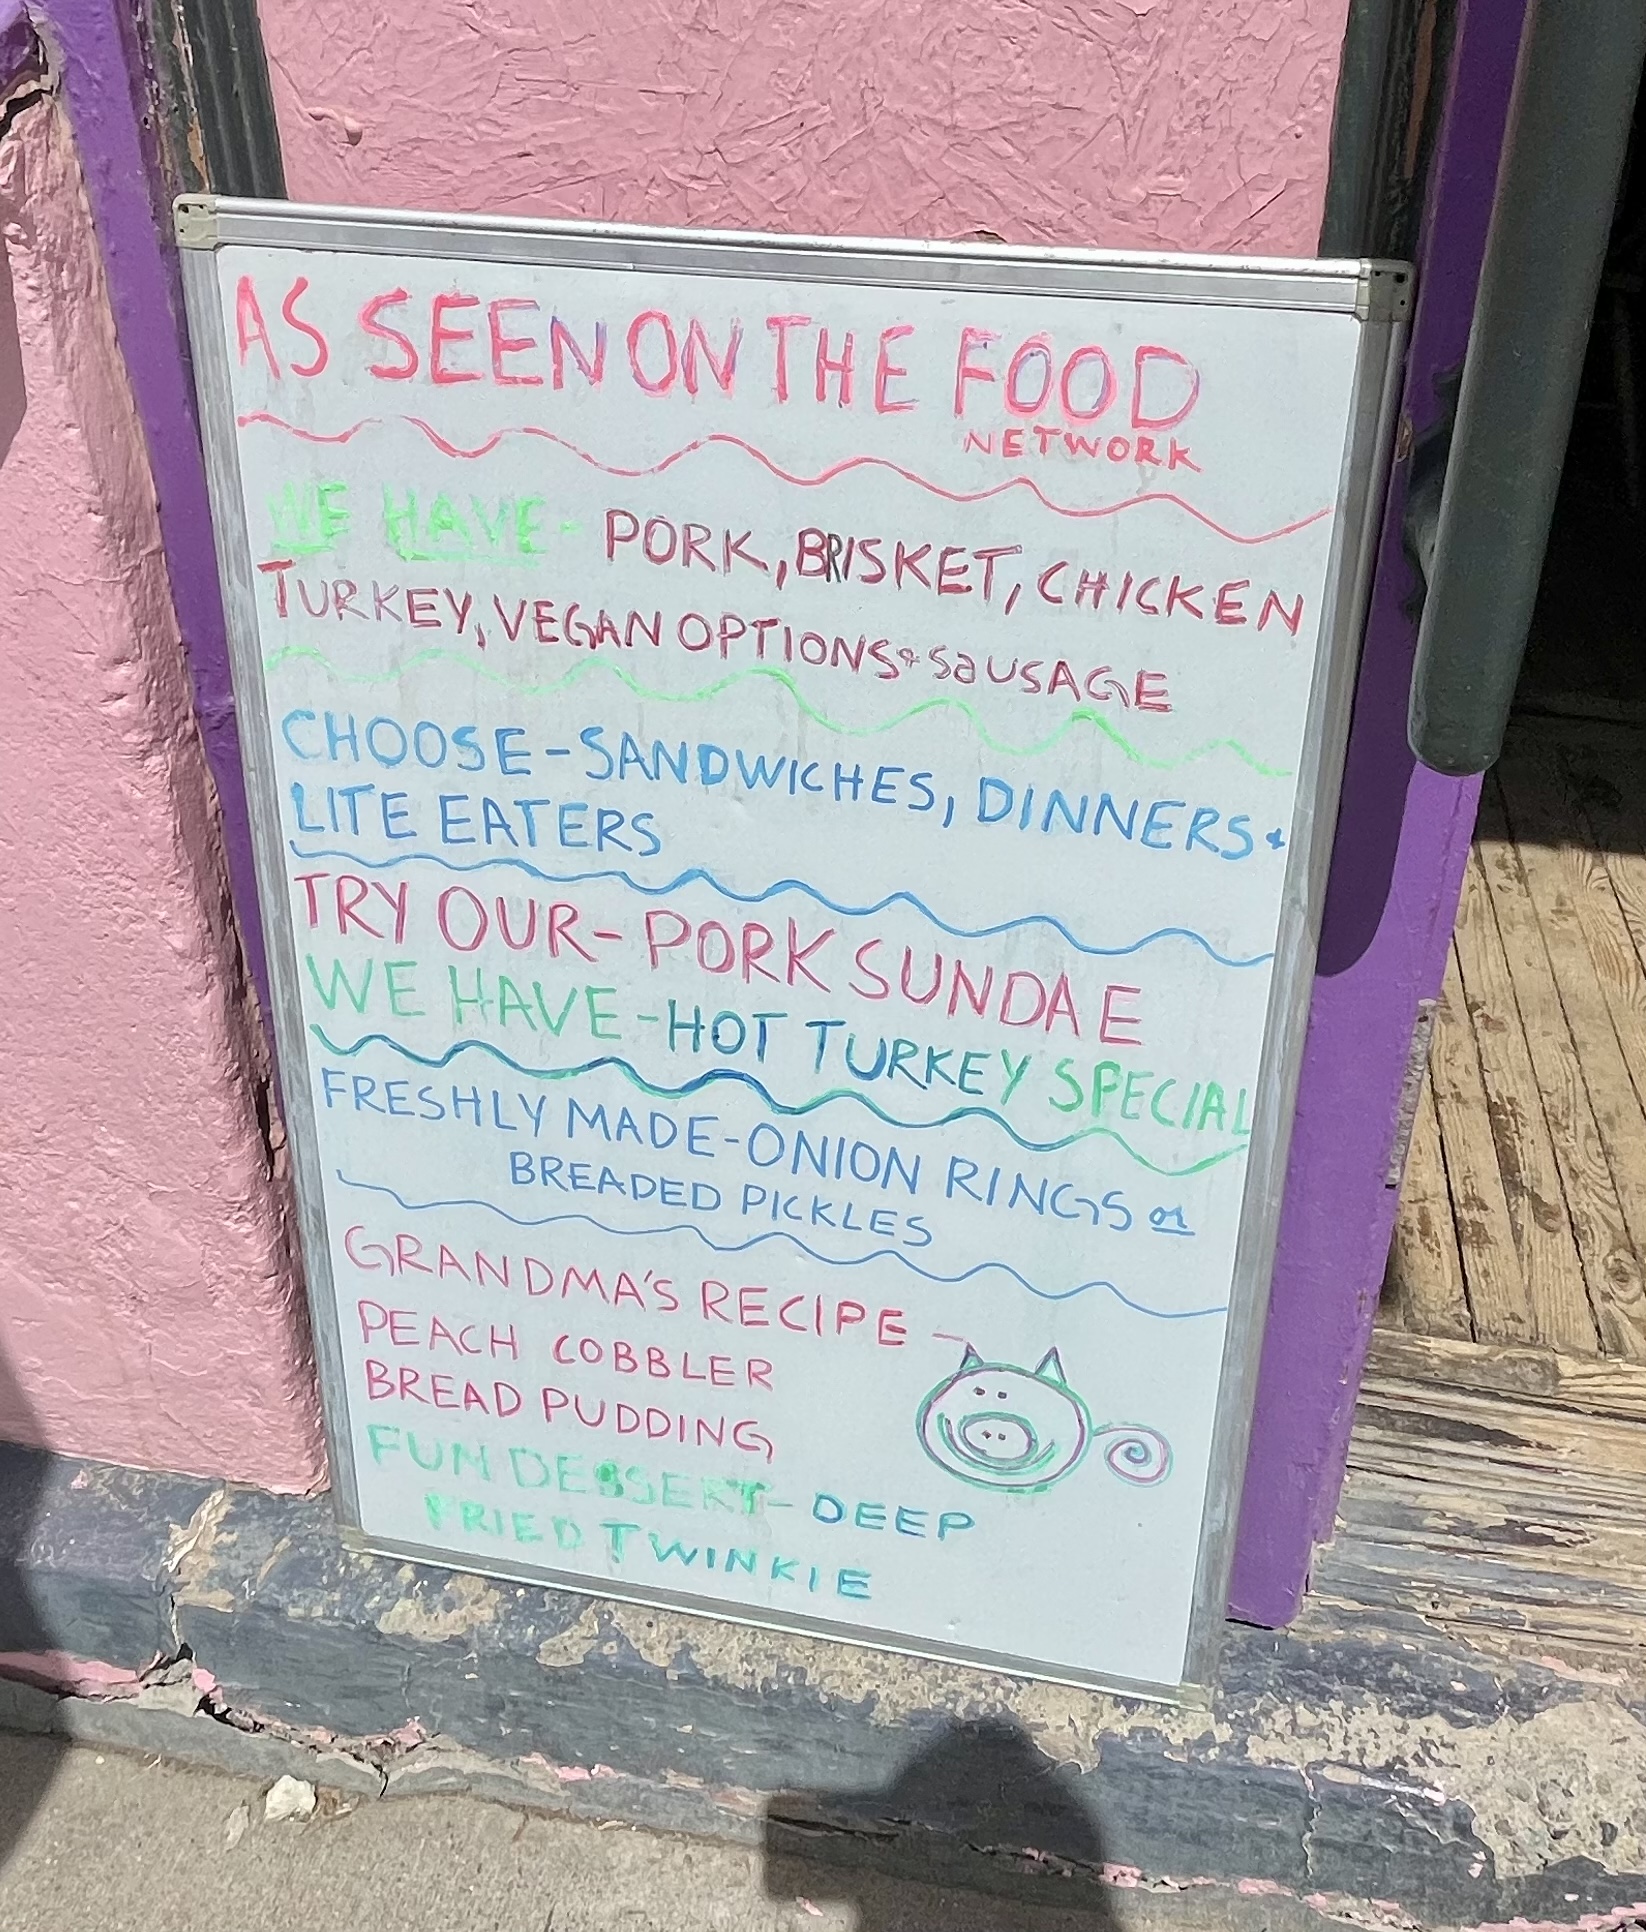 AS SEEN ON THE FOOD
NETWORK
WE HAVE- PORK, BRISKET, CHICKEN
TURKEY, VEGAN OPTIONS & SaUSAGE
CHOOSE-SANDWICHES, DINNERS &
LITE EATERS
TRY OUR- PORK SUNDAE
WE HAVE-HOT TURKEY SPECIAL
FRESHLY MADE-ONION RINGS or
BREADED PICKLES
GRANDMA'S RECIPE -
PEACH COBBLER
BREAD PUDDING
FUN DESSERT- DEEP
FRIED TWINKIE